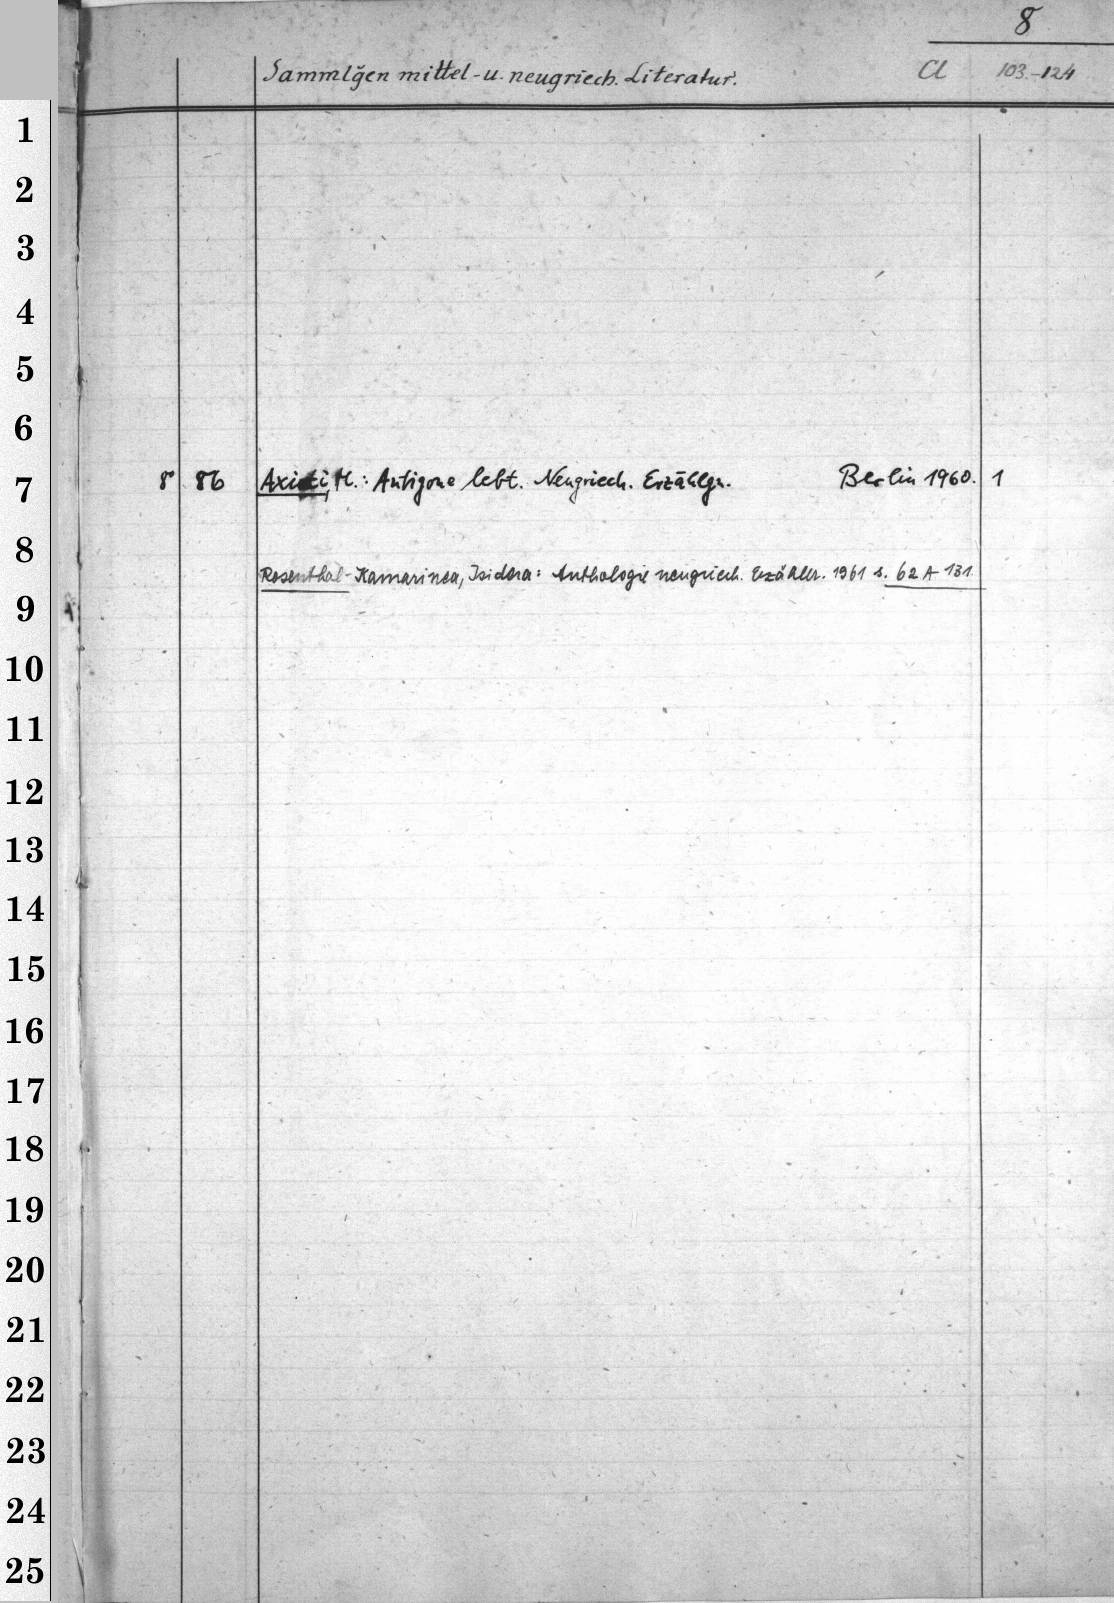 8
Sammlg̃en mittel- u. neugriech. Literatur. Cl 103.-124
1
2
3
4
5
6
7 8 86 Axioti, M.: Antigone lebt. Neugriech. Erzählgn. Berlin 1960. 1
8
Rosenthal-Kamarinea, Isidora: Anthologie neugriech. Erzähler. 1961 s. 62 A 131
9
10
11
12
13
14
15
16
17
18
19
20
21
22
23
24
25